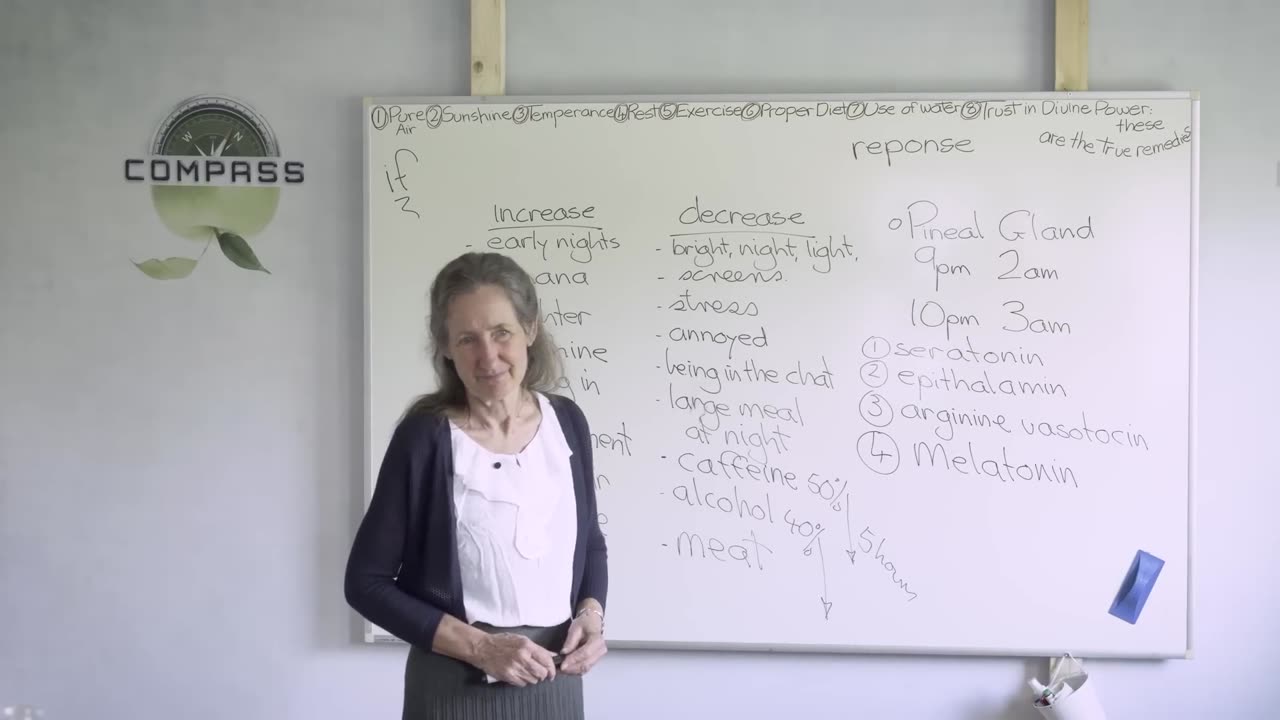 COMPASS
① Pure ② Sunshine ③ Temperance ④ Rest ⑤ Exercise ⑥ Proper Diet ⑦ Use of water ⑧ Trust in Divine Power:
Air
these
are the true remedies
reponse
if
Increase
- early nights
ana
hter
ine
in
ment
decrease
- bright, night, light,
- screens.
- stress
- annoyed
- being in the chat
- large meal
at night
- caffeine 50%
- alcohol 40%
5 hours
- meat
o Pineal Gland
9pm 2am
10pm 3am
① seratonin
② epithalamin
③ arginine vasotocin
④ Melatonin